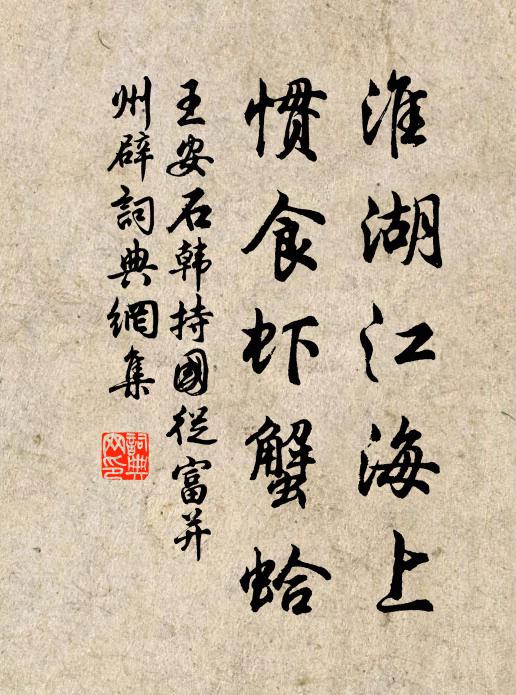 淮湖江海上
惯食虾蟹蛤
王安石韩持國従富并
州辟詞典網集
詞典
网印